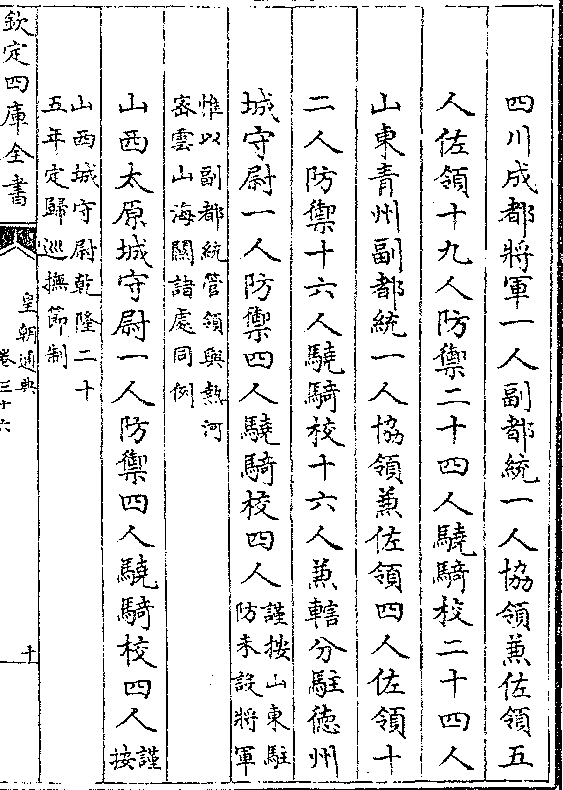 四川成都將軍一人副都統一人協領兼佐領五
人佐領十九人防禦二十四人驍騎校二十四人
山東青州副都統一人協領兼佐領四人佐領十
二人防禦十六人驍騎校十六人兼轄分駐德州
城守尉一人防禦四人驍騎校四人謹按山東駐
防未設將軍
惟以副都統管領與熱河
密雲山海關諸處同例
山西太原城守尉一人防禦四人驍騎校四人謹
按
山西城守尉乾隆二十
五年定歸巡撫節制
欽定四庫全書
皇朝通典
卷三十六
十